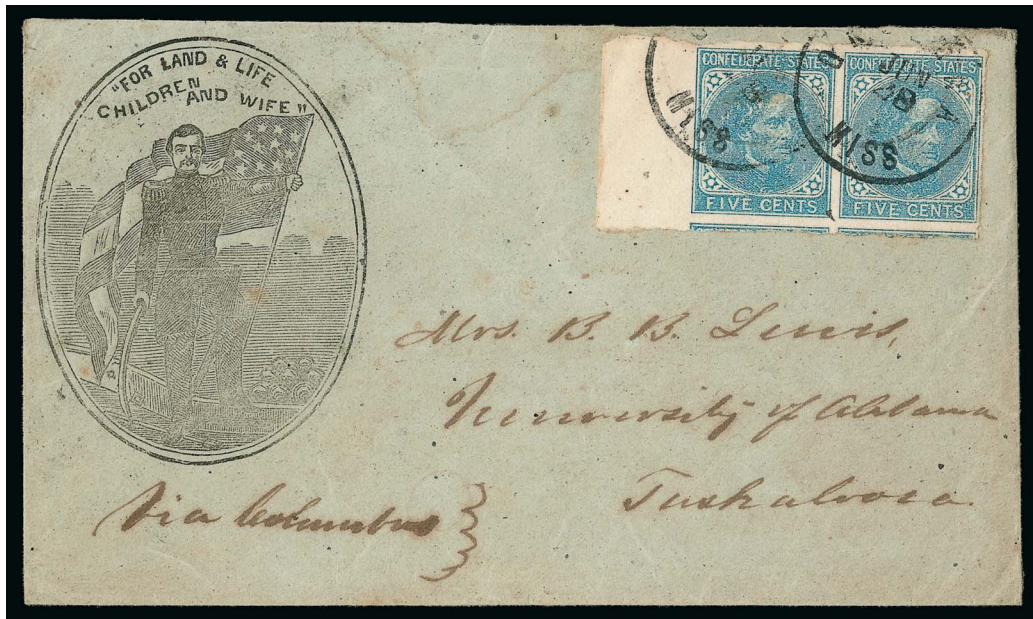 "FOR LAND & LIFE
CHILDREN
AND WIFE"
CONFEDERATE STATES
CONFEDERATE STATES
FIVE CENTS
FIVE CENTS
MISS
JUN
28
MISS
Mrs. B. B. Lewis,
University of Alabama
Tuskaloosa
Via Columbus